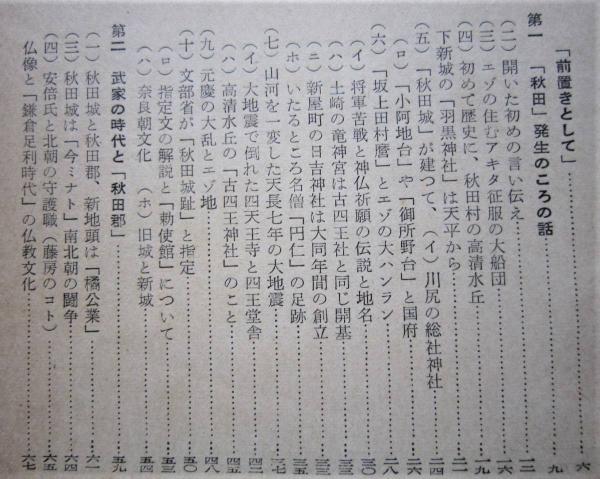 「前置きとして」……………六
第一　「秋田」発生のころの話……………九
（二）開いた初めの言い伝え……………一二
（三）エゾの住むアキタ征服の大船団……………一六
（四）初めて歴史に、秋田村の高清水丘……………一九
下新城の「羽黒神社」は天平から……………二一
（五）「秋田城」が建つて、（イ）川尻の総社神社……………二四
（ロ）「小阿地台」や「御所野台」と国府……………二六
（六）「坂上田村麿」とエゾの大ハンラン……………二八
（イ）将軍苦戦と神仏祈願の伝説と地名……………三〇
（ハ）土崎の竜神宮は古四王社と同じ開基……………三三
（ニ）新屋町の日吉神社は大同年間の創立……………三三
（ホ）いたるところ名僧「円仁」の足跡……………三五
（七）山河を一変した天長七年の大地震……………三七
（イ）大地震で倒れた四天王寺と四王堂舎……………四二
（ハ）高清水丘の「古四王神社」のこと……………四五
（九）元慶の大乱とエゾ地……………四八
（十）文部省が「秋田城趾」と指定……………五〇
（ロ）指定文の解説と「勅使館」について……………五三
（ハ）奈良朝文化　（ホ）旧城と新城……………五四
第二　武家の時代と「秋田郡」……………五九
（一）秋田城と秋田郡、新地頭は「橘公業」……………六一
（三）秋田城は「今ミナト」南北朝の闘争……………六四
（四）安倍氏と北朝の守護職（藤房のコト）……………六五
仏像と「鎌倉足利時代」の仏教文化……………六七